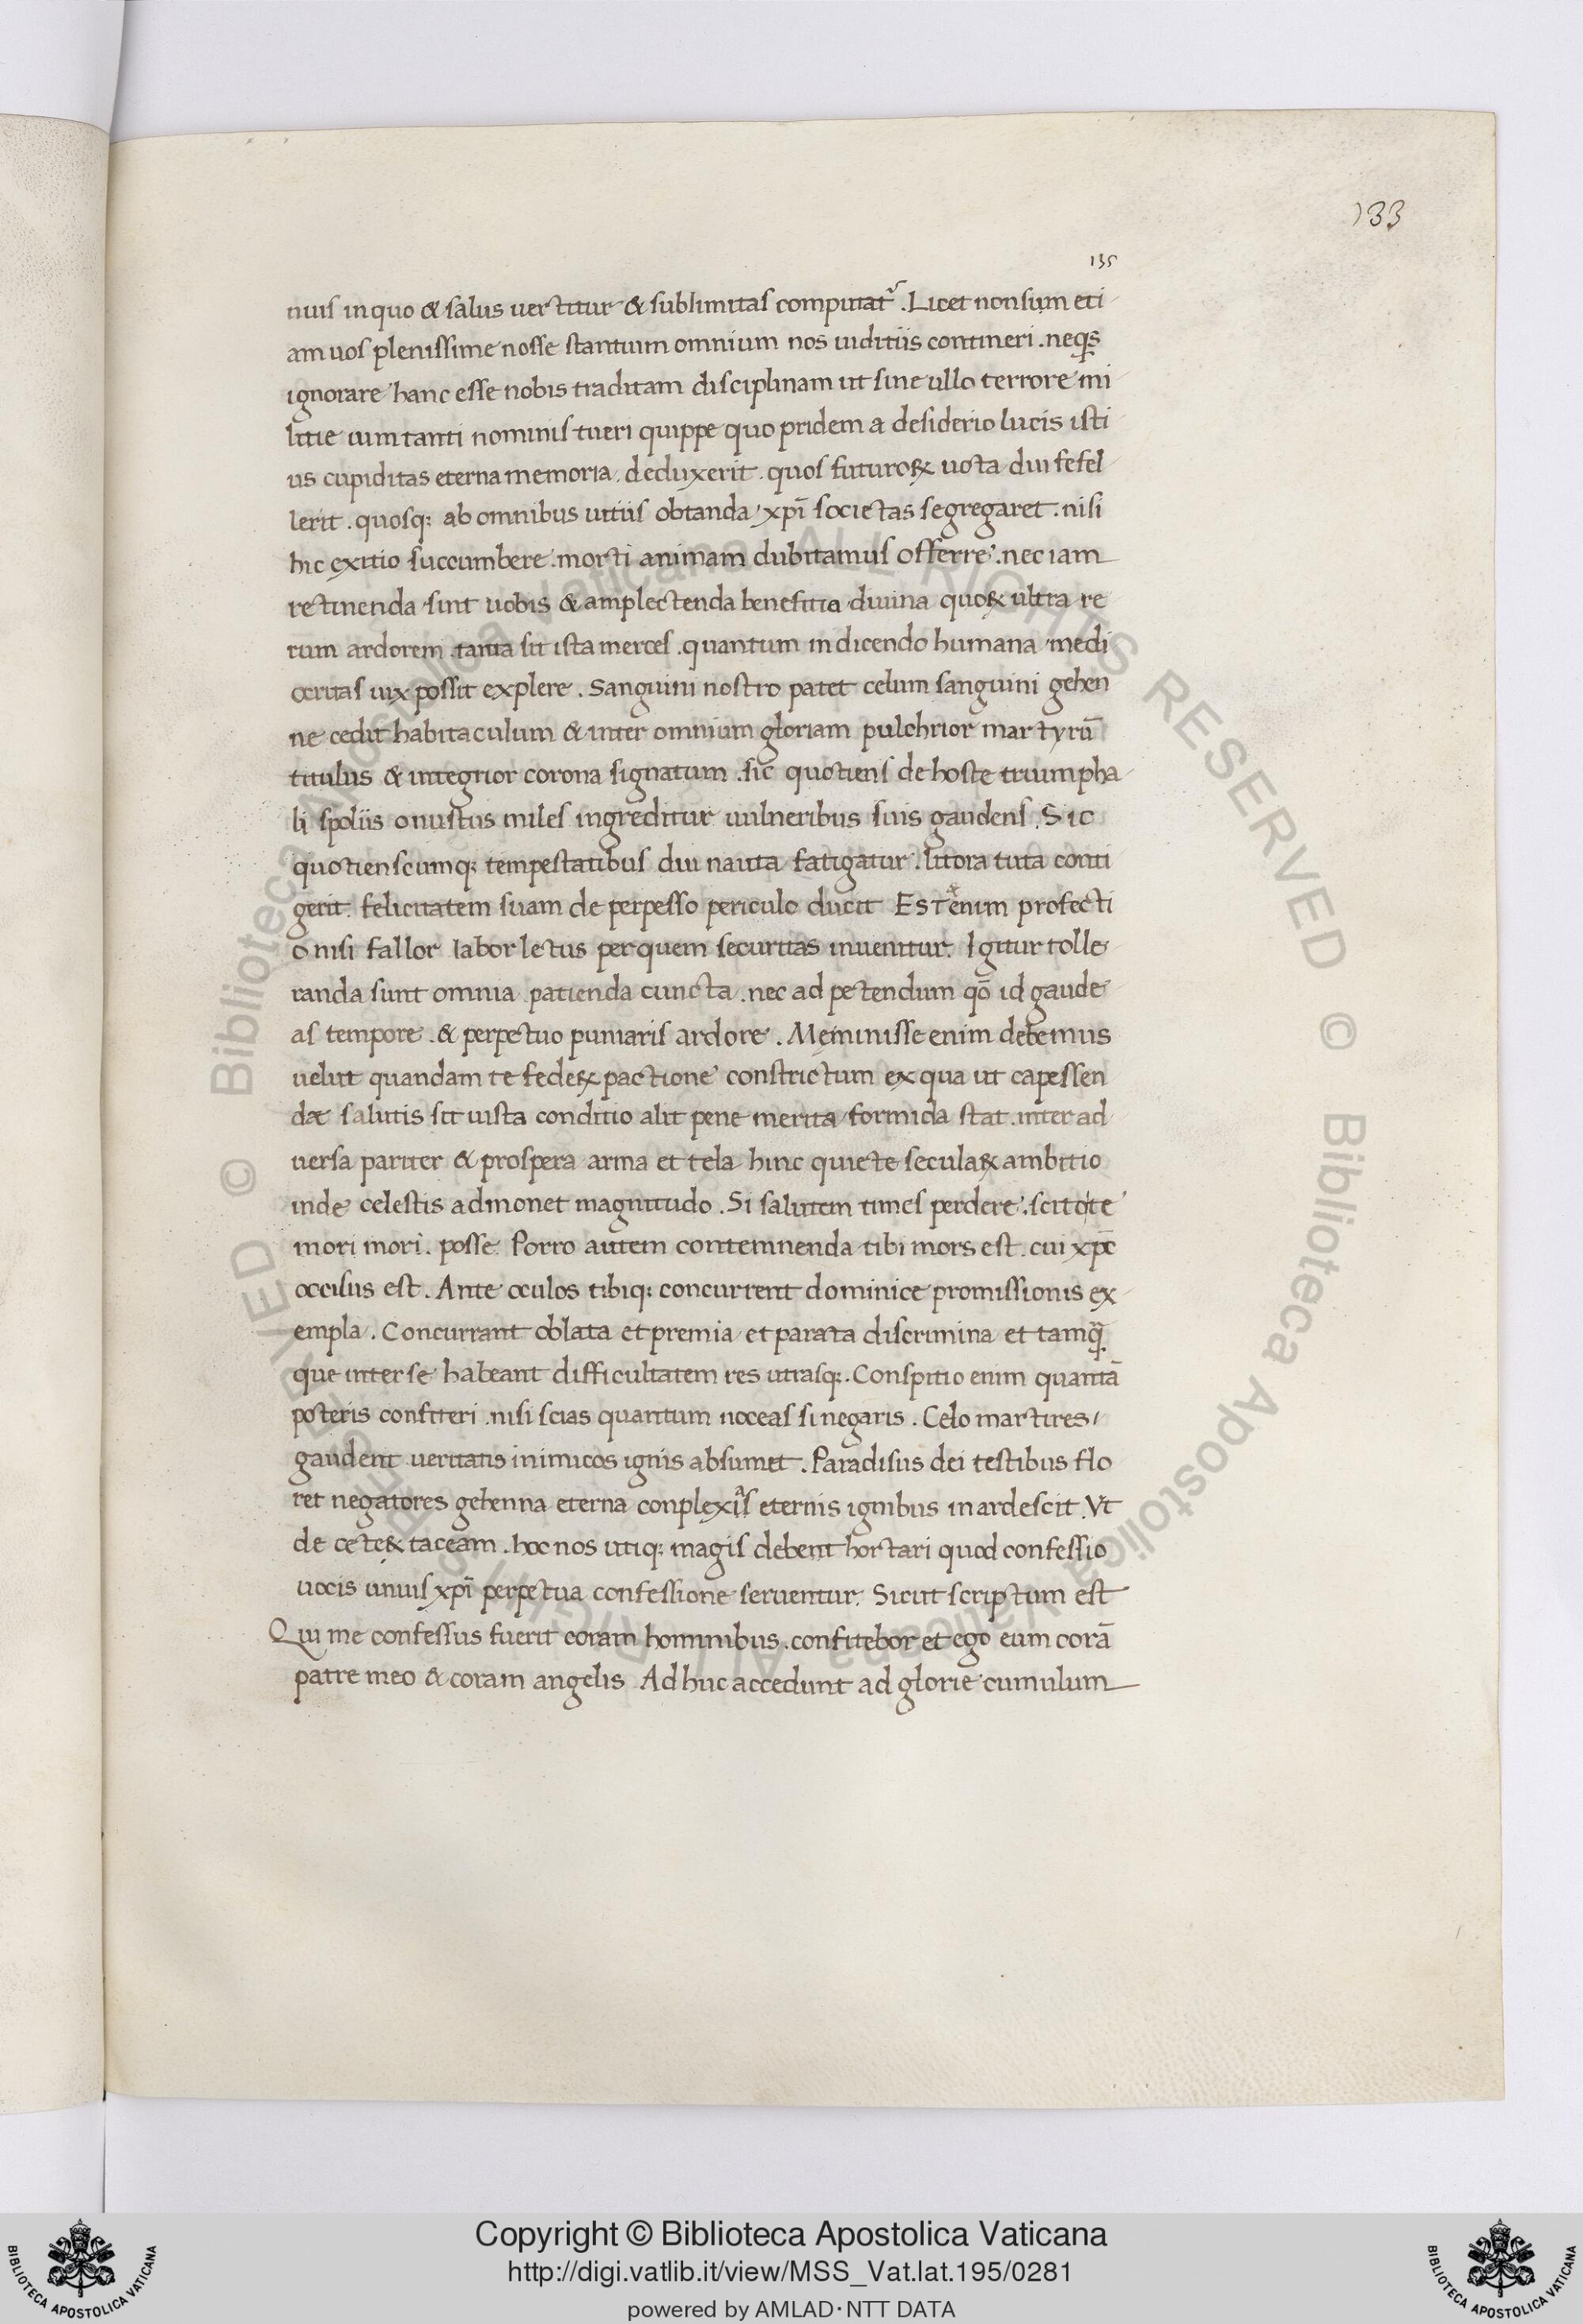 133
135
nuis in quo & salus uertitur & sublimitas computatᷣ. Licet non sum eti
am uos plenissime nosse stantium omnium nos iuditiis contineri. neqꝫ
ignorare hanc esse nobis traditam disciplinam ut sine ullo terrore mi
litie uim tanti nominis tueri quippe quo pridem a desiderio lucis isti
us cupiditas eterna memoria. deduxerit. quos futuroꝝ uota diu fefel
lerit. quosqꝫ ab omnibus uitiis obtanda xpī societas segregaret. nisi
hic exitio succumbere. morti animam dubitamus offerre. nec iam
retinenda sint uobis & amplectenda benefitia diuina quoꝝ ultra re
rum ardorem. tanta sit ista merces. quantum in dicendo humana medi
ocritas uix possit explere. Sanguini nostro patet celum sanguini gehen
ne cedit habitaculum & inter omnium gloriam pulchrior martyrū
titulus & integrior corona signatum. sic quotiens de hoste triumpha
li spoliis onustus miles ingreditur uulneribus suis gaudens. Sic
quotienscumqꝫ tempestatibus diu nauta fatigatur. litora tuta conti
gerit. felicitatem suam de perpesso periculo ducit Est enim profecti
o nisi fallor labor letus per quem securitas inuenitur. Igitur tolle
randa sunt omnia patienda cuncta. nec ad petendum qō id gaude
as tempore. & perpetuo puniaris ardore. Meminisse enim debemus
uelut quandam te fedeꝝ pactione constrictum ex qua ut capessen
dæ salutis sit iusta conditio alit pene merita formida stat. inter ad
uersa pariter & prospera arma et tela hinc quiete seculaꝝ ambitio
inde celestis admonet magnitudo. Si salutem times perdere. scitote
mori mori. posse. Porro autem contemnenda tibi mors est. cui xpc̄
occisus est. Ante oculos tibiqꝫ concurrent dominice promissionis ex
empla. Concurrant oblata et premia et parata discrimina et tamq̄
que inter se habeant difficultatem res utrasqꝫ. Conspitio enim quantā
poteris confiteri. nisi scias quantum noceas si negaris. Celo martires
gaudent ueritatis inimicos ignis absumet. Paradisus dei testibus flo
ret negatores gehenna eterna conplexis eternis ignibus inardescit. Vt
de ceteꝝ taceam. hoc nos utiqꝫ magis debent hortari quod confessio
uocis unius xpī perpetua confessione seruentur. Sicut scriptum est
Qui me confessus fuerit coram hominibus. confitebor et ego eum corā
patre meo & coram angelis Ad huc accedunt ad glorie cumulum
© Biblioteca Apostolica Vaticana ALL RIGHTS RESERVED © Biblioteca Apostolica Vaticana ALL RIGHTS RESERVED
Copyright © Biblioteca Apostolica Vaticana
http://digi.vatlib.it/view/MSS_Vat.lat.195/0281
powered by AMLAD·NTT DATA
BIBLIOTECA APOSTOLICA VATICANA
BIBLIOTECA APOSTOLICA VATICANA